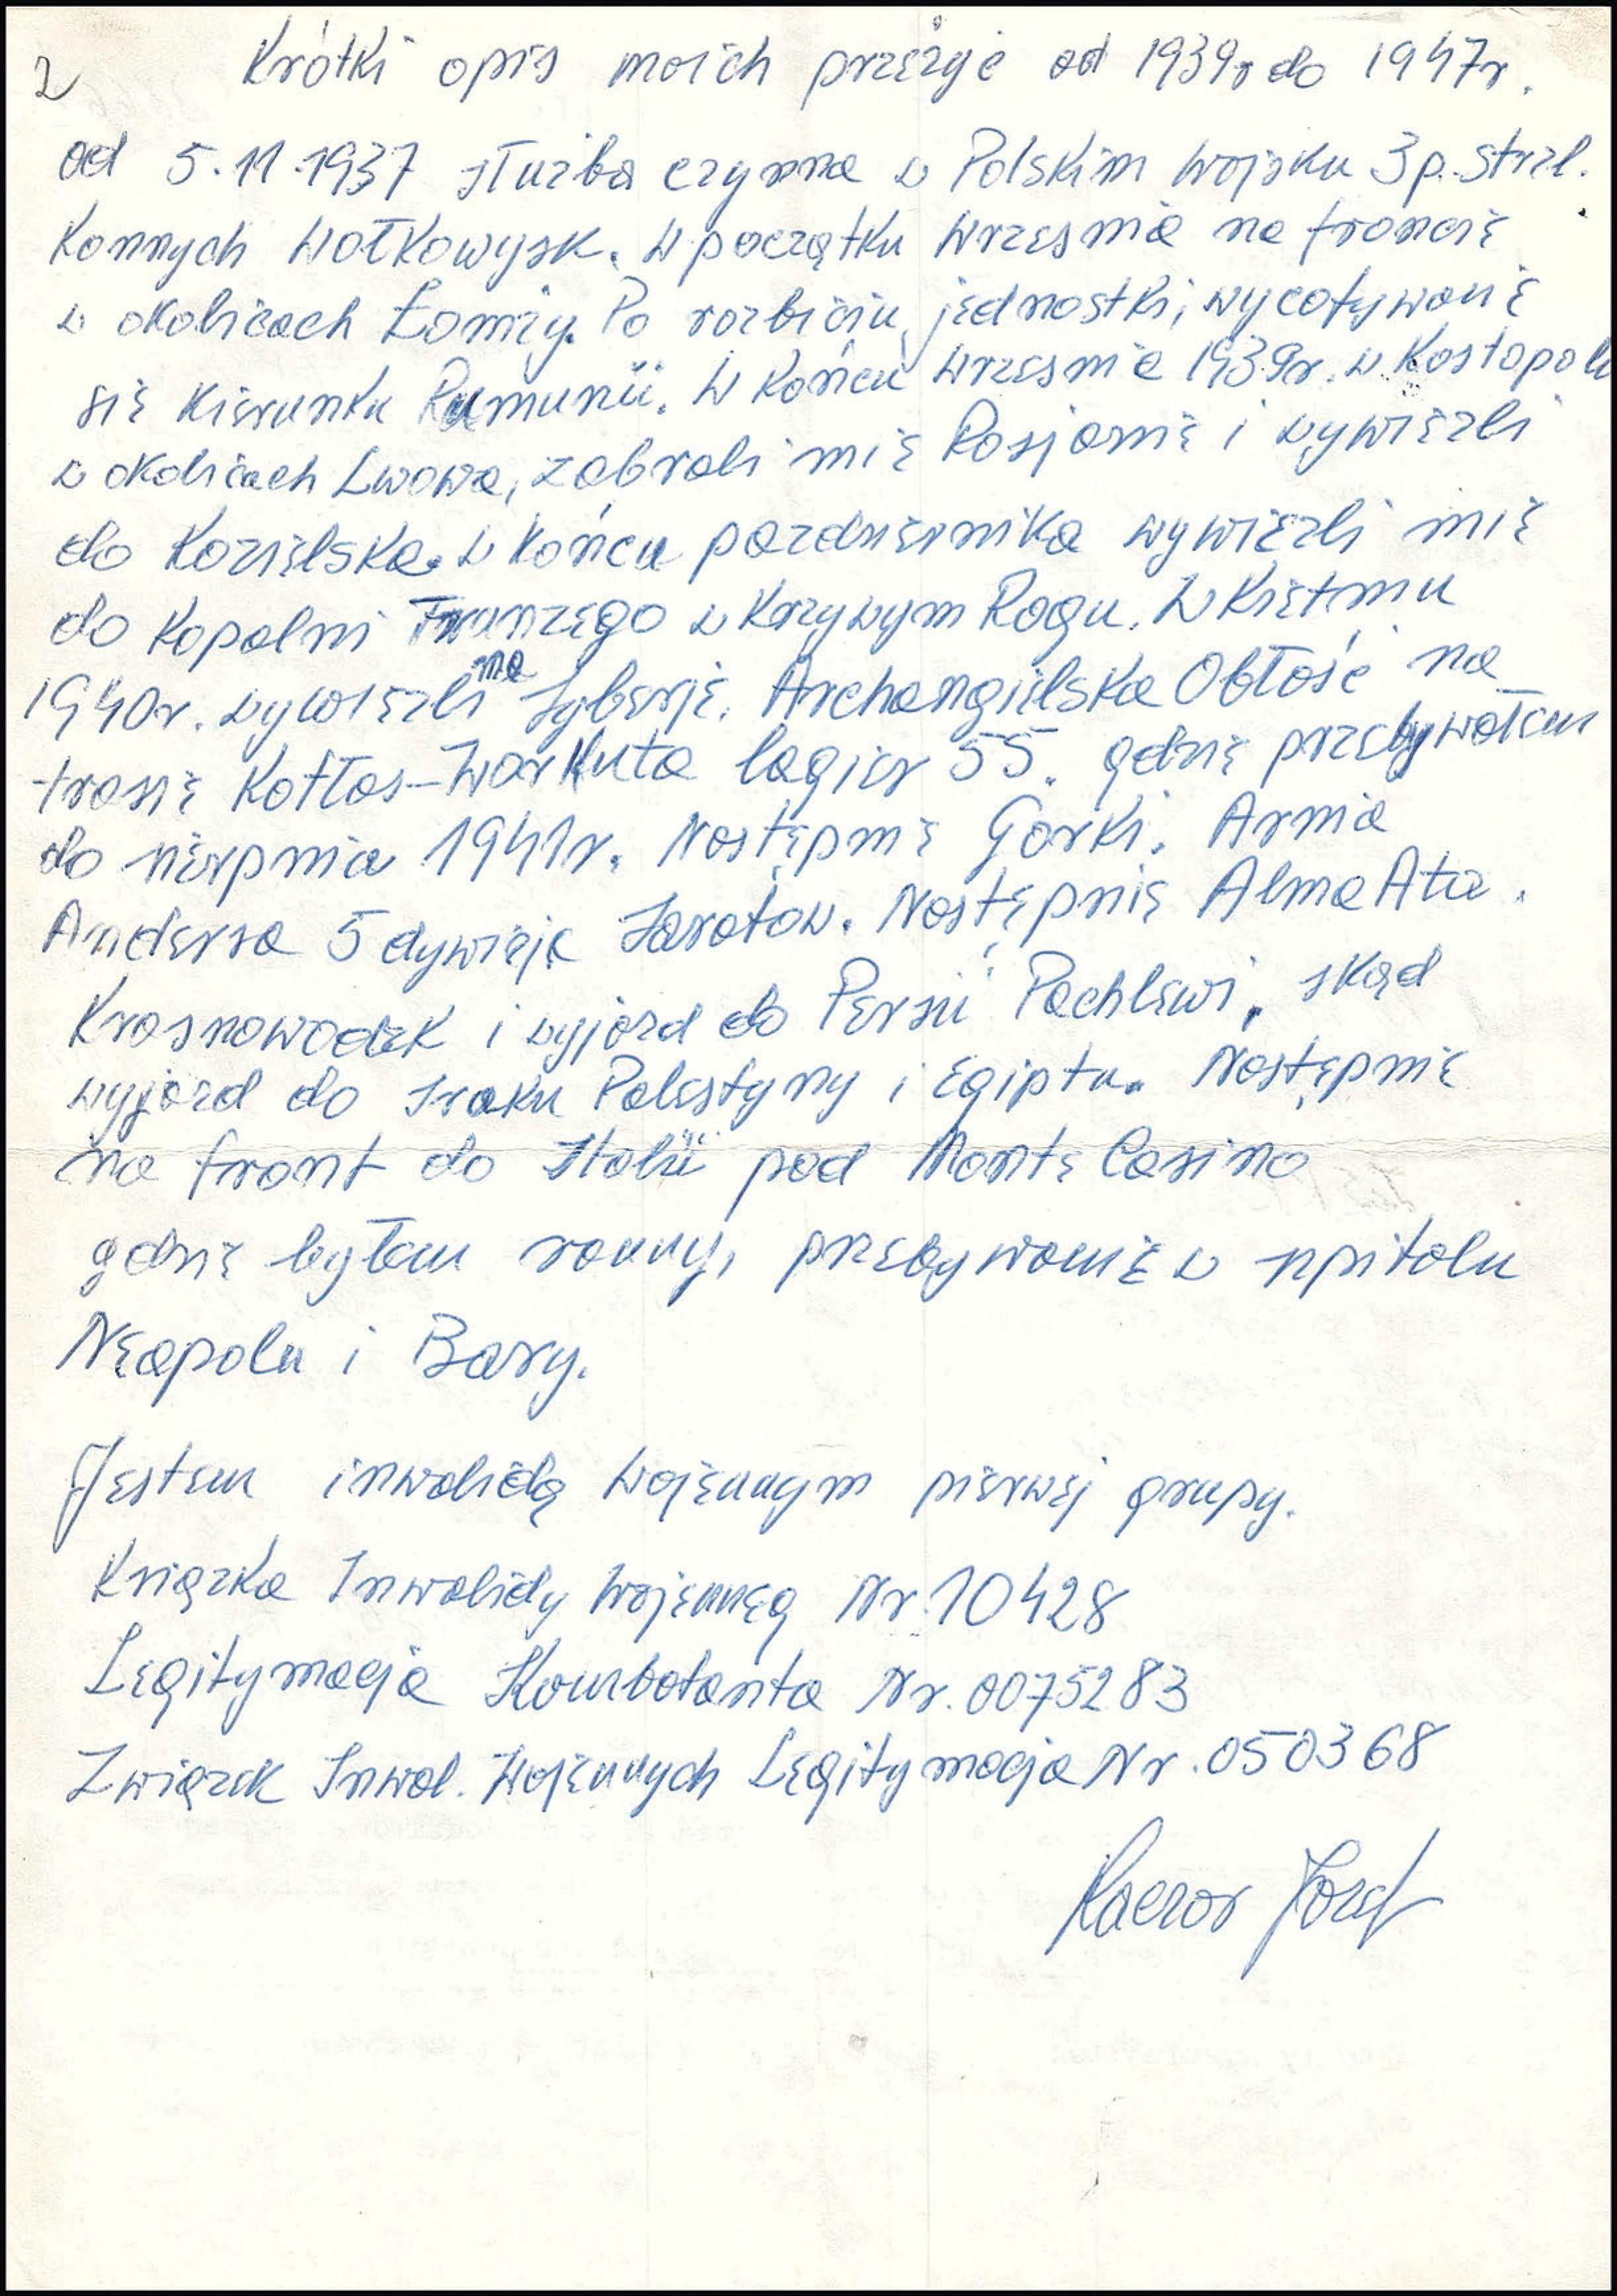 2 Krótki opis moich przeżyć od 1939r do 1947r.
od 5.11.1937 służba czynna w Polskim Wojsku 3 p. Strzl.
Konnych Wołkowysk. W początku Wrzesnia na froncie
w okolicach Łomży. Po rozbiciu jednostki, wycofywanie
się kierunku Rumunii. W końcu Wrzesnia 1939r. w Kostopolu
w okolicach Lwowa, zabrali mię Rosjanie i wywieźli
do Kozielska. w końcu pazdziernika wywieźli mię
do Kopalni Frunzego w Krzywym Rogu. W Kwietniu
1940r. wywieźli na Syberję. Archangielska Obłość na
trasie Kotłas-Workuta łagier 55. gdzie przebywałem
do sierpnia 1941r. Następnie Gorki. Armia
Andersa 5 dywizja Saratow. Następnie Alma Ata.
Krasnowodzk i wyjazd do Persii Pachlewi, skąd
wyjazd do Iraku Palestyny i Egiptu. Następnie
na front do Italii pod Monte Casino
gdzie byłem ranny, przebywanie w szpitalu
Neapolu i Bary.
Jestem inwalidą wojennym pierwej grupy.
Książka Inwalidy Wojenneg Nr. 10428
Legitymacja Kombatanta Nr. 0075283
Związek Inwal. Wojennych Legitymacja Nr. 050368
Kaczor Józef